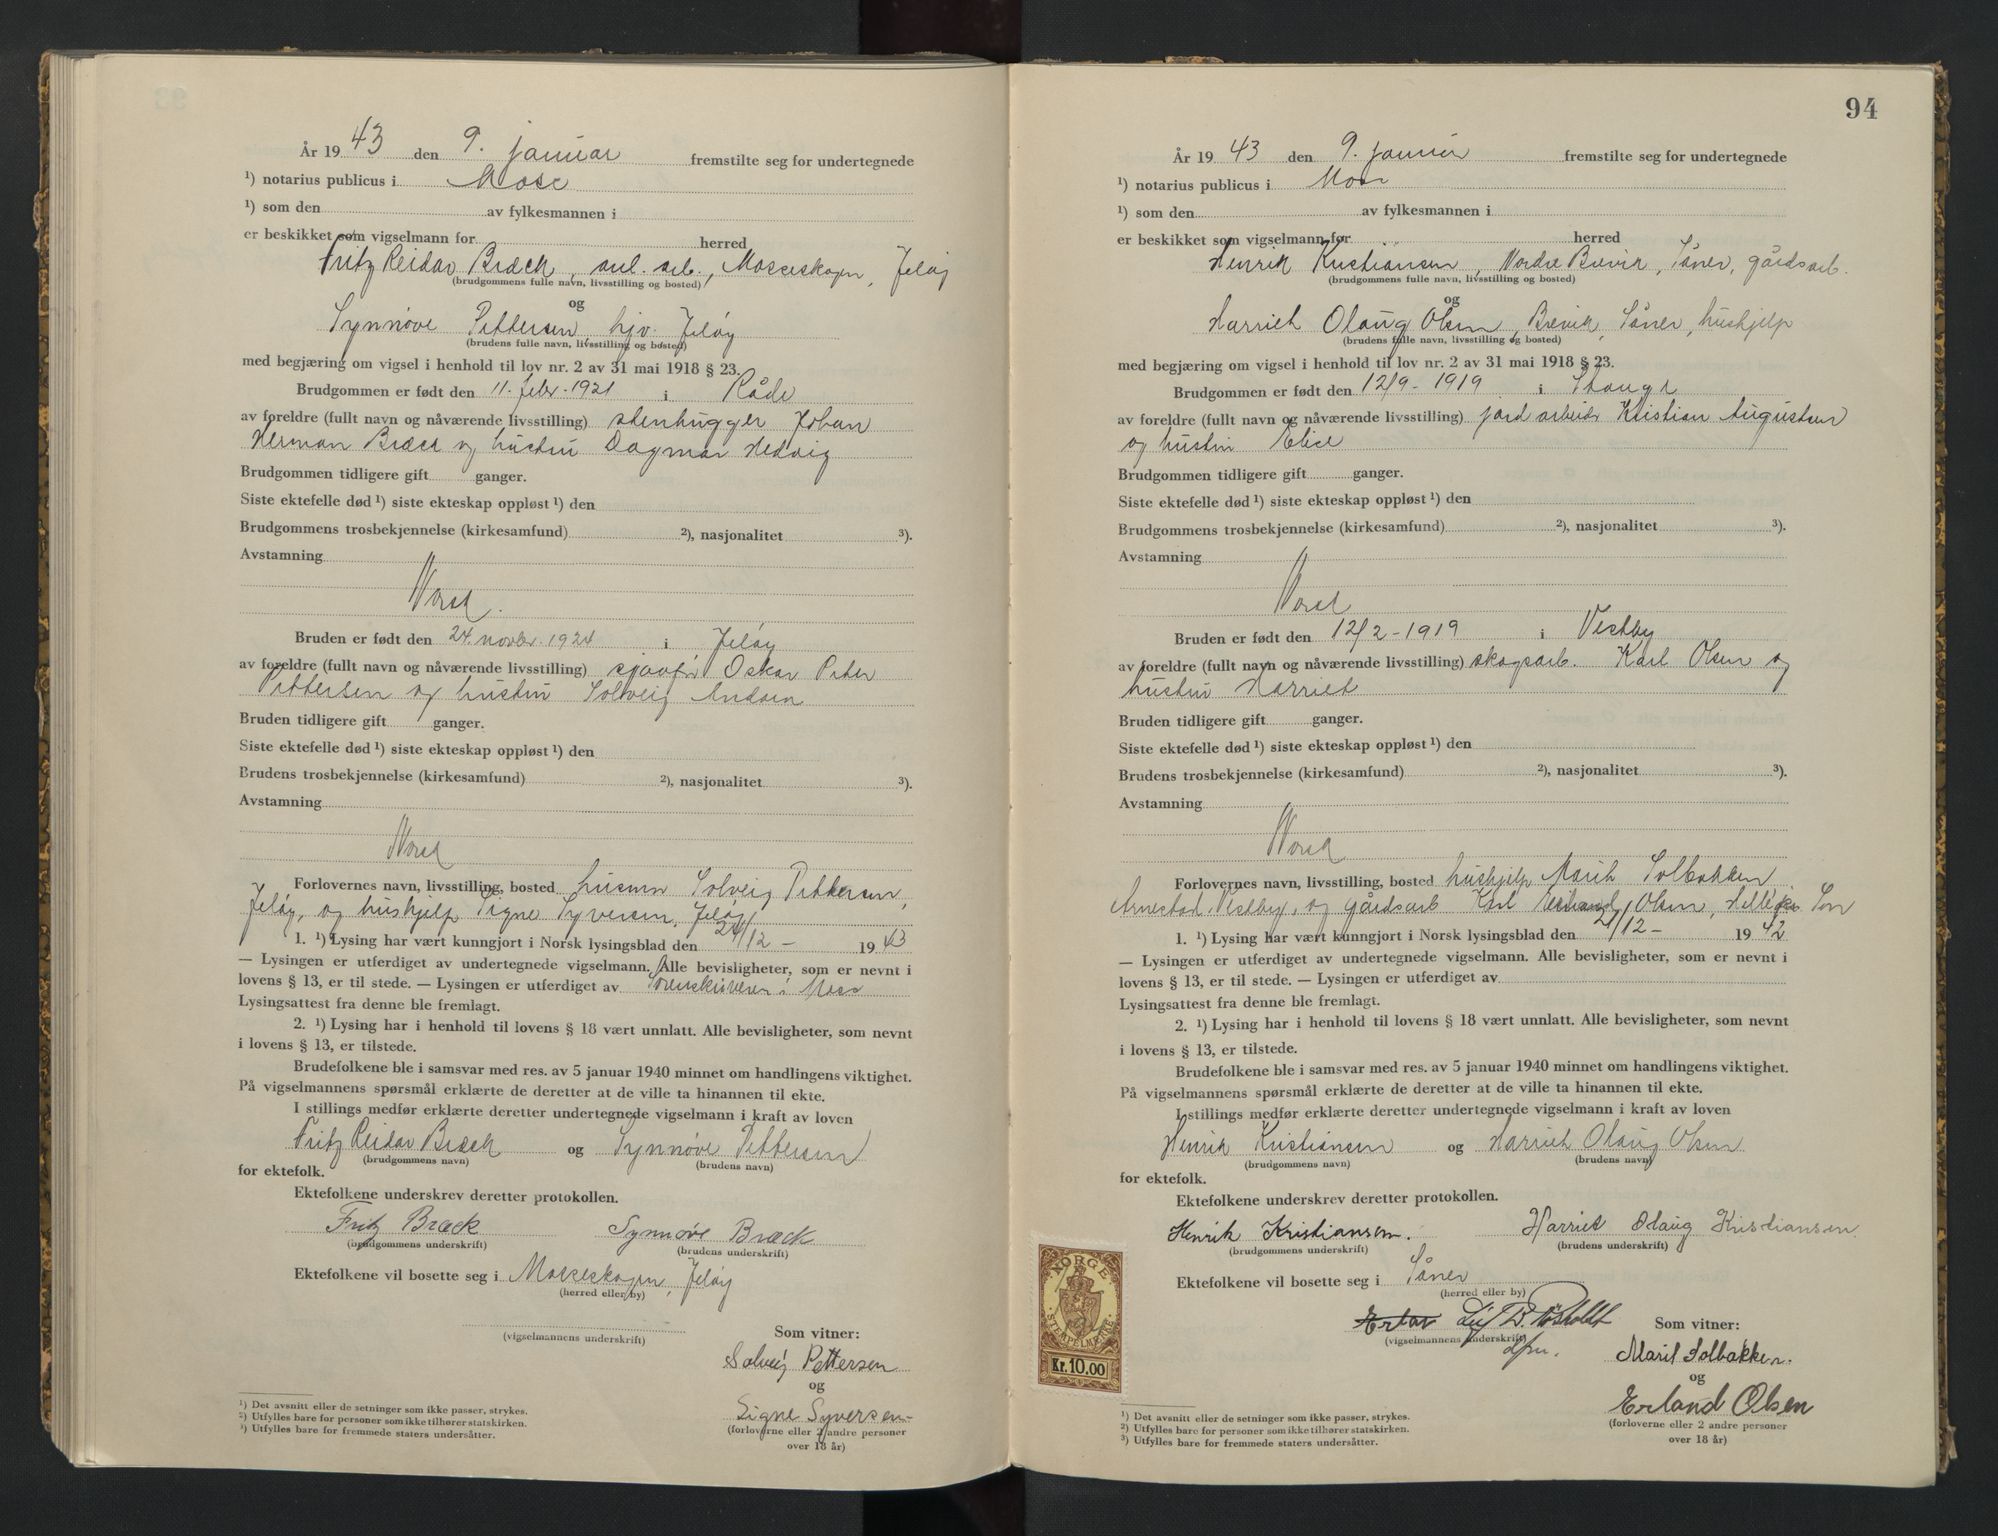 År 19 43 den 9. januar fremstilte seg for undertegnede
¹) notarius publicus i Moss
¹) som den av fylkesmannen i
er beskikket som vigselmann for herred
Fritz Reidar Bræck, anl. arb., Mosseskogen, Jeløy
(brudgommens fulle navn, livsstilling og bosted)
og
Synnøve Pettersen hjv. Jeløy
(brudens fulle navn, livsstilling og bosted)
med begjæring om vigsel i henhold til lov nr. 2 av 31 mai 1918 § 23.
Brudgommen er født den 11. febr. 1921 i Råde
av foreldre (fullt navn og nåværende livsstilling) stenhugger Johan
Herman Bræck og hustru Dagmar Hedvig
Brudgommen tidligere gift ganger.
Siste ektefelle død ¹) siste ekteskap oppløst ¹) den
Brudgommens trosbekjennelse (kirkesamfund) ²), nasjonalitet ³).
Avstamning
Norsk.
Bruden er født den 24. novbr. 1924 i Jeløy
av foreldre (fullt navn og nåværende livsstilling) sjåafør Oskar Peter
Pettersen og hustru Solveig
Bruden tidligere gift ganger.
Siste ektefelle død ¹) siste ekteskap oppløst ¹) den
Brudens trosbekjennelse (kirkesamfund) ²), nasjonalitet ³).
Avstamning
Norsk
Forlovernes navn, livsstilling, bosted husmor Solveig Pettersen,
Jeløy, og hushjelp Signe Syversen, Jeløy
1. ¹) Lysing har vært kunngjort i Norsk lysingsblad den 24/12 - 19 43
— Lysingen er utferdiget av undertegnede vigselmann. Alle bevisligheter, som er nevnt i
lovens § 13, er til stede. — Lysingen er utferdiget av Sorenskriveren i Moss
Lysingsattest fra denne ble fremlagt.
2. ¹) Lysing har i henhold til lovens § 18 vært unnlatt. Alle bevisligheter, som nevnt
i lovens § 13, er tilstede.
Brudefolkene ble i samsvar med res. av 5 januar 1940 minnet om handlingens viktighet.
På vigselmannens spørsmål erklærte de deretter at de ville ta hinannen til ekte.
I stillings medfør erklærte deretter undertegnede vigselmann i kraft av loven
Fritz Reidar Bræck og Synnøve Pettersen
(brudgommens navn) (brudens navn)
for ektefolk.
Ektefolkene underskrev deretter protokollen.
Fritz Bræck Synnøve Bræck
(brudgommens underskrift) (brudens underskrift)
Ektefolkene vil bosette seg i Mosseskogen, Jeløy
(herred eller by)
(vigselmannens underskrift) Som vitner:
Solveig Pettersen
og
Signe Syversen
(forloverne eller 2 andre personer
over 18 år)
¹) Det avsnitt eller de setninger som ikke passer, strykes.
²) Utfylles bare for personer som ikke tilhører statskirken.
³) Utfylles bare for fremmede staters undersåtter.
94
År 19 43 den 9. januar fremstilte seg for undertegnede
¹) notarius publicus i Moss
¹) som den av fylkesmannen i
er beskikket som vigselmann for herred
Henrik Kristiansen, Nordre Brevik, Såner, gårdsarb.
(brudgommens fulle navn, livsstilling og bosted)
og
Harriet Olaug Olsen, Brevik, Såner, hushjelp
(brudens fulle navn, livsstilling og bosted)
med begjæring om vigsel i henhold til lov nr. 2 av 31 mai 1918 § 23.
Brudgommen er født den 12/9 - 1919 i
av foreldre (fullt navn og nåværende livsstilling) jordarbeider Kristian Augustsen
og hustru Elise
Brudgommen tidligere gift ganger.
Siste ektefelle død ¹) siste ekteskap oppløst ¹) den
Brudgommens trosbekjennelse (kirkesamfund) ²), nasjonalitet ³).
Avstamning
Norsk
Bruden er født den 12/2 - 1919 i Vestby
av foreldre (fullt navn og nåværende livsstilling) skogsarb. Karl Olsen og
hustru Harriet
Bruden tidligere gift ganger.
Siste ektefelle død ¹) siste ekteskap oppløst ¹) den
Brudens trosbekjennelse (kirkesamfund) ²), nasjonalitet ³).
Avstamning
Norsk
Forlovernes navn, livsstilling, bosted hushjelp Marit Solbakken
Arnestad, Vestby, og gårdsarb Karl Erland Olsen,
1. ¹) Lysing har vært kunngjort i Norsk lysingsblad den 21/12 - 19 42
— Lysingen er utferdiget av undertegnede vigselmann. Alle bevisligheter, som er nevnt i
lovens § 13, er til stede. — Lysingen er utferdiget av
Lysingsattest fra denne ble fremlagt.
2. ¹) Lysing har i henhold til lovens § 18 vært unnlatt. Alle bevisligheter, som nevnt
i lovens § 13, er tilstede.
Brudefolkene ble i samsvar med res. av 5 januar 1940 minnet om handlingens viktighet.
På vigselmannens spørsmål erklærte de deretter at de ville ta hinannen til ekte.
I stillings medfør erklærte deretter undertegnede vigselmann i kraft av loven
Henrik Kristiansen og Harriet Olaug Olsen
(brudgommens navn) (brudens navn)
for ektefolk.
Ektefolkene underskrev deretter protokollen.
Henrik Kristiansen. Harriet Olaug Kristiansen
(brudgommens underskrift) (brudens underskrift)
Ektefolkene vil bosette seg i Såner
(herred eller by)
Som vitner:
(vigselmannens underskrift)
Marit Solbakken.
og
Erland Olsen
(forloverne eller 2 andre personer
over 18 år)
NORGE
STEMPELMERKE
Kr. 10.00
¹) Det avsnitt eller de setninger som ikke passer, strykes.
²) Utfylles bare for personer som ikke tilhører statskirken.
³) Utfylles bare for fremmede staters undersåtter.